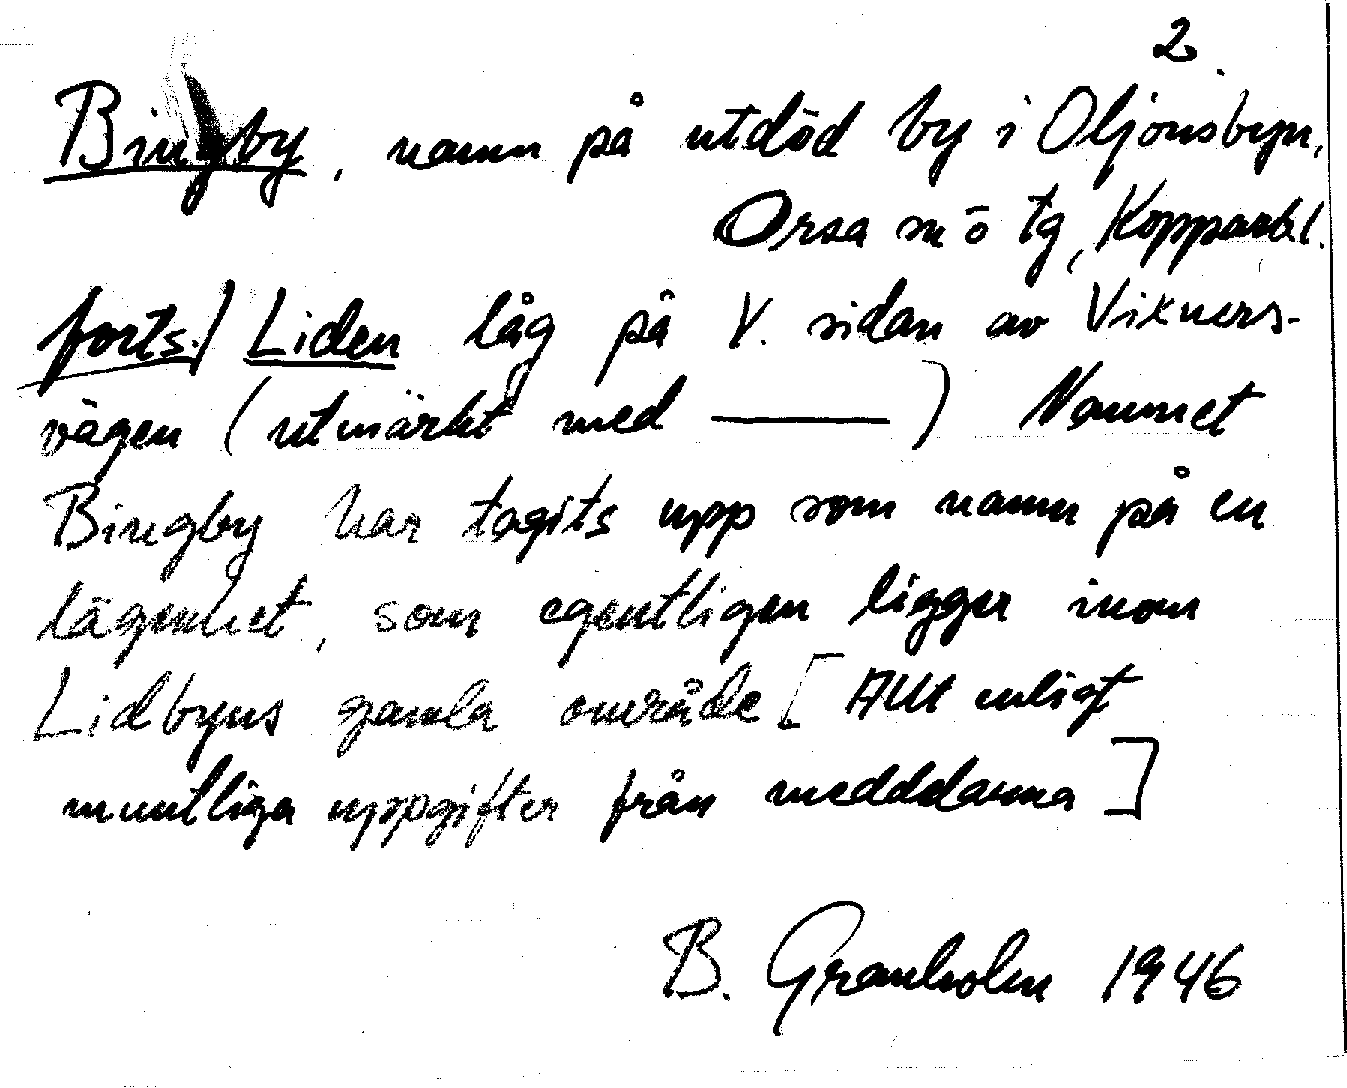 2
Bingby, namn på utdöd by i Oljonsbyn,
Orsa sn ö tg, Kopparb.l.
forts./ Liden låg på V. sidan av Vikners-
vägen (utmärkt med ———) Namnet
Bingby har tagits upp som namn på en
lägenhet, som egentligen ligger inom
Lidbyns gamla område [Allt enligt
muntliga uppgifter från medddarna]
B. Granholm 1946